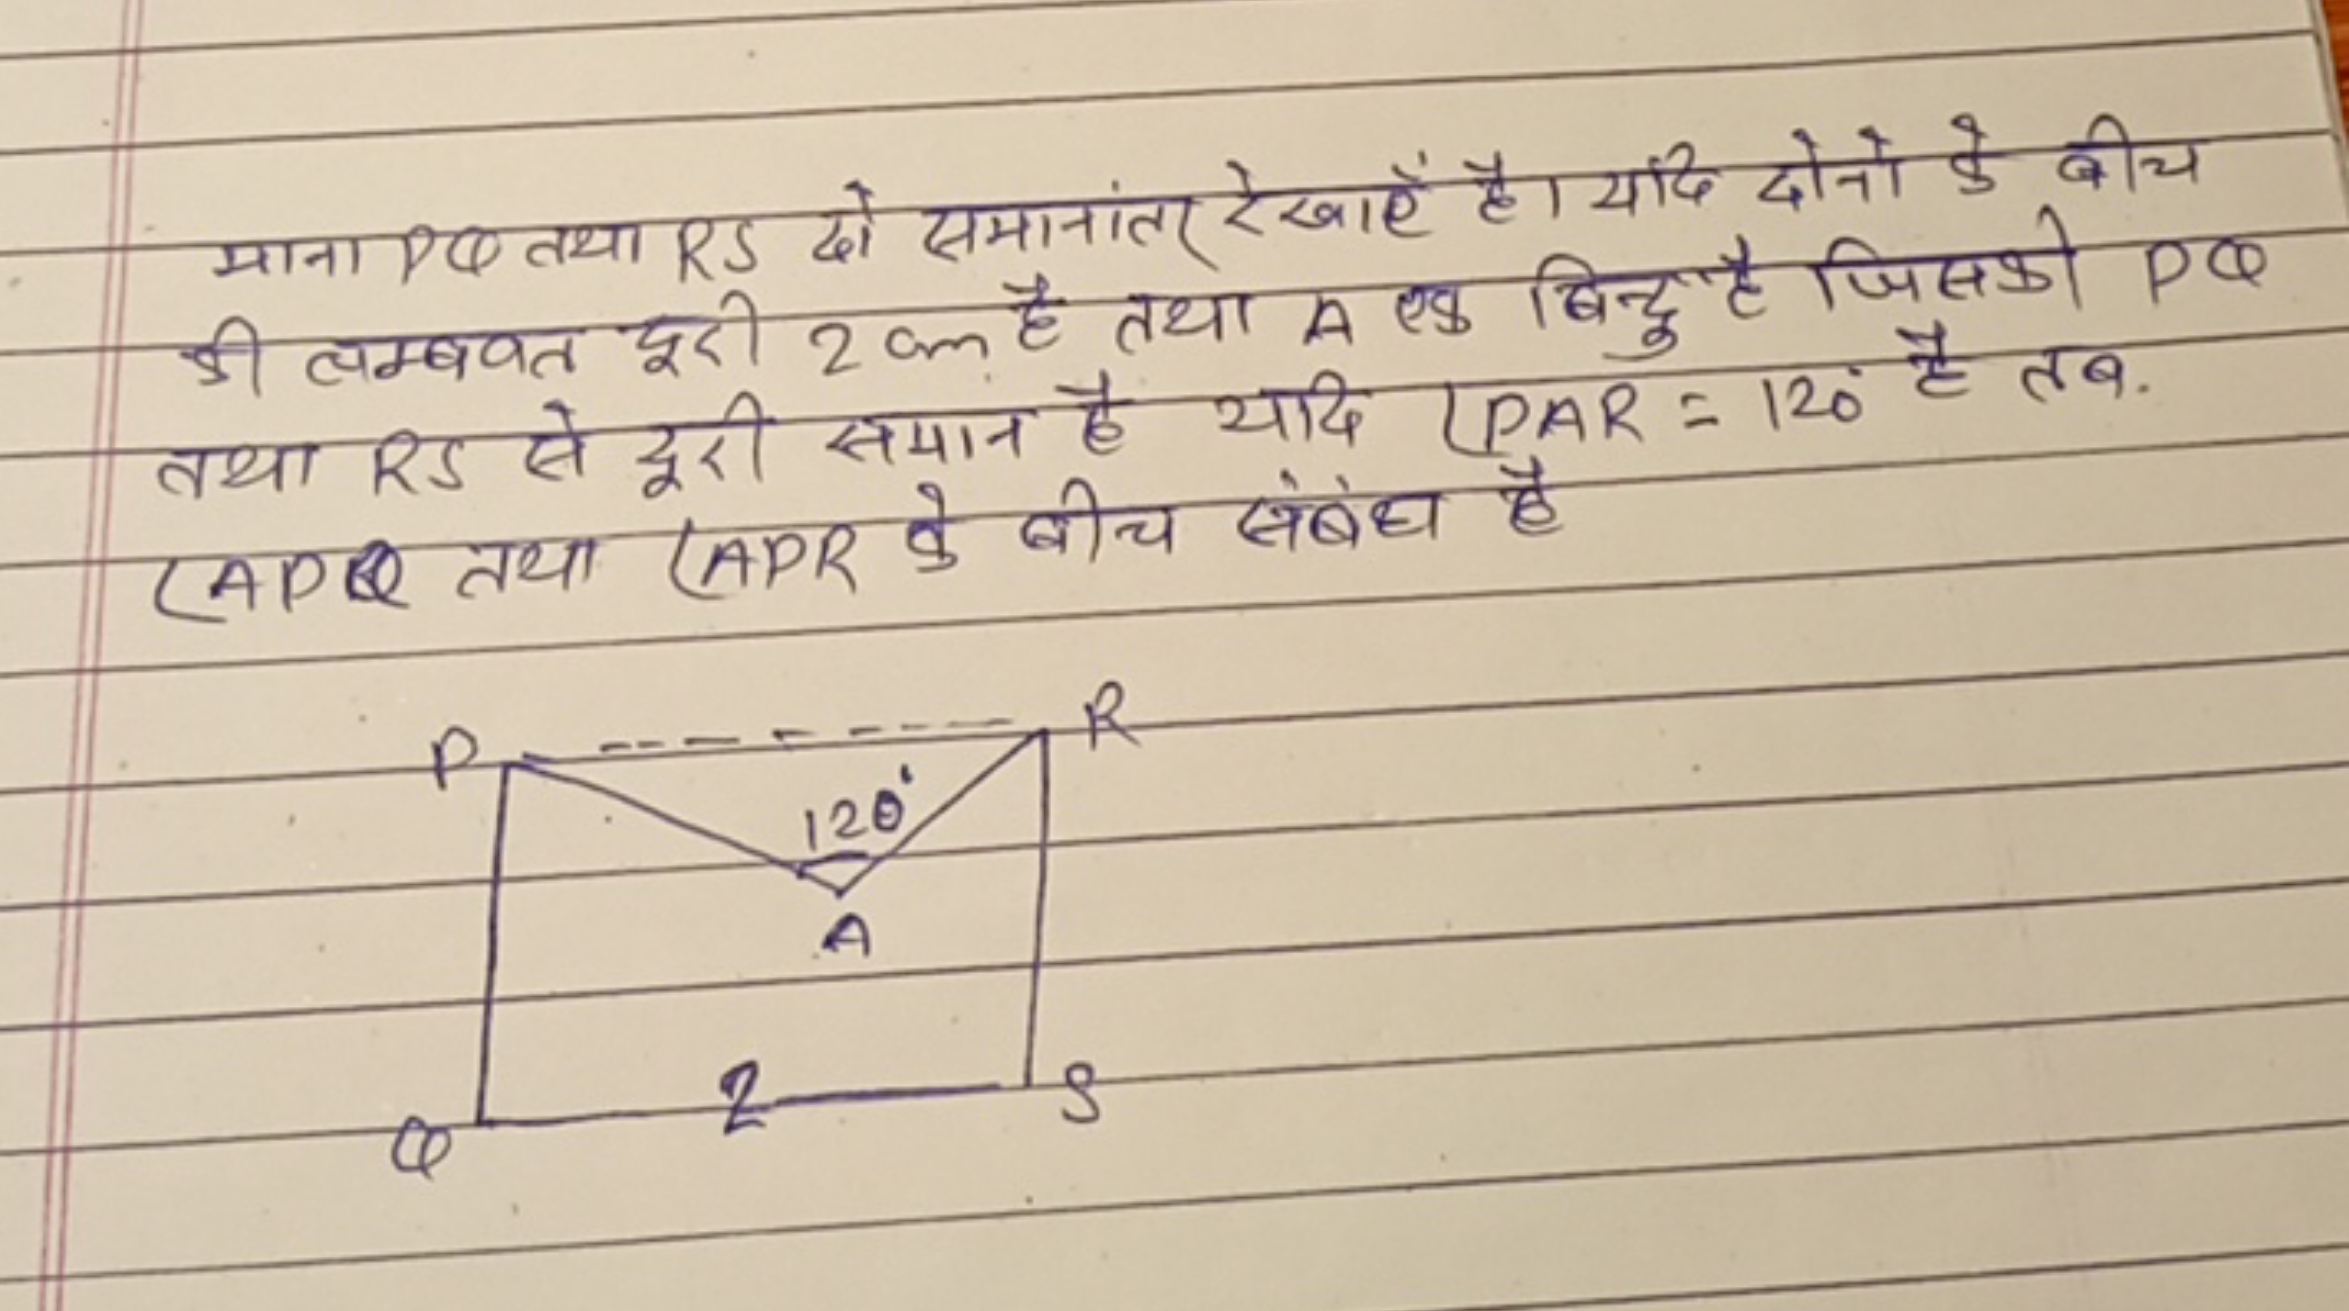 माना PQ तथा RS दो समानांतर रेखाएँ है। यदि दोनो के बीच
की लम्बवत दूरी 2 cm है तथा A एक बिन्दु है जिसकी PQ
तथा RS से दूरी समान है यदि ∠PAR = 120° है तब.
∠APQ तथा ∠APR के बीच संबंध है
P R
120°
A
Q 2 S